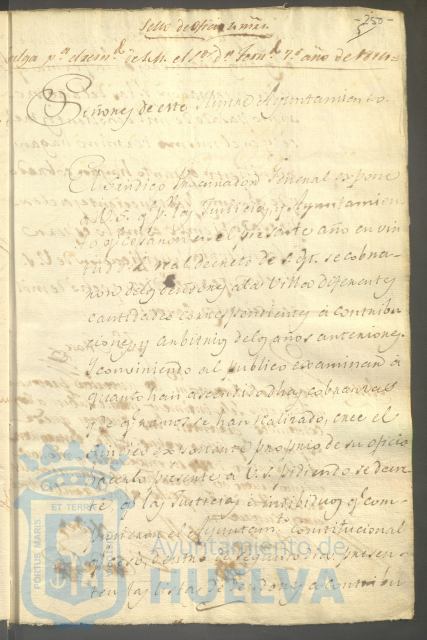 Sello de oficio 4 mrs.
-250-
Valga pa. el reind. de S.M. el Sr. Dn. Fernd. 7º año de 1814=
Señores de este Illtre. Ayuntamiento.
El Síndico Procurador General expone
a V.S. q. pr. las Justicias y Ayuntamien
to q. cesaron en el presente año en vir
tud d. real decreto de S.M. se cobra-
ron de los deudores a la Villa diferentes
cantidades correspondientes a contribu
ciones y arbitrios de los años anteriores
y conviniendo al publico examinar a
quanto han ascendido dhas. cobranzas
y q. ramos se han realizado, cree el
Sindico ser bastante propio de su oficio
hacerlo presente a V.S. pidiendo se decre
te q. las Justicias e individuos q. com-
ponian el Ayuntamto. constitucional
q. ceso, dentro de segundo dia presen-
ten las listas de deudores a contribu
PORTUS MARIS
ET TERRAE
Ayuntamiento de
HUELVA